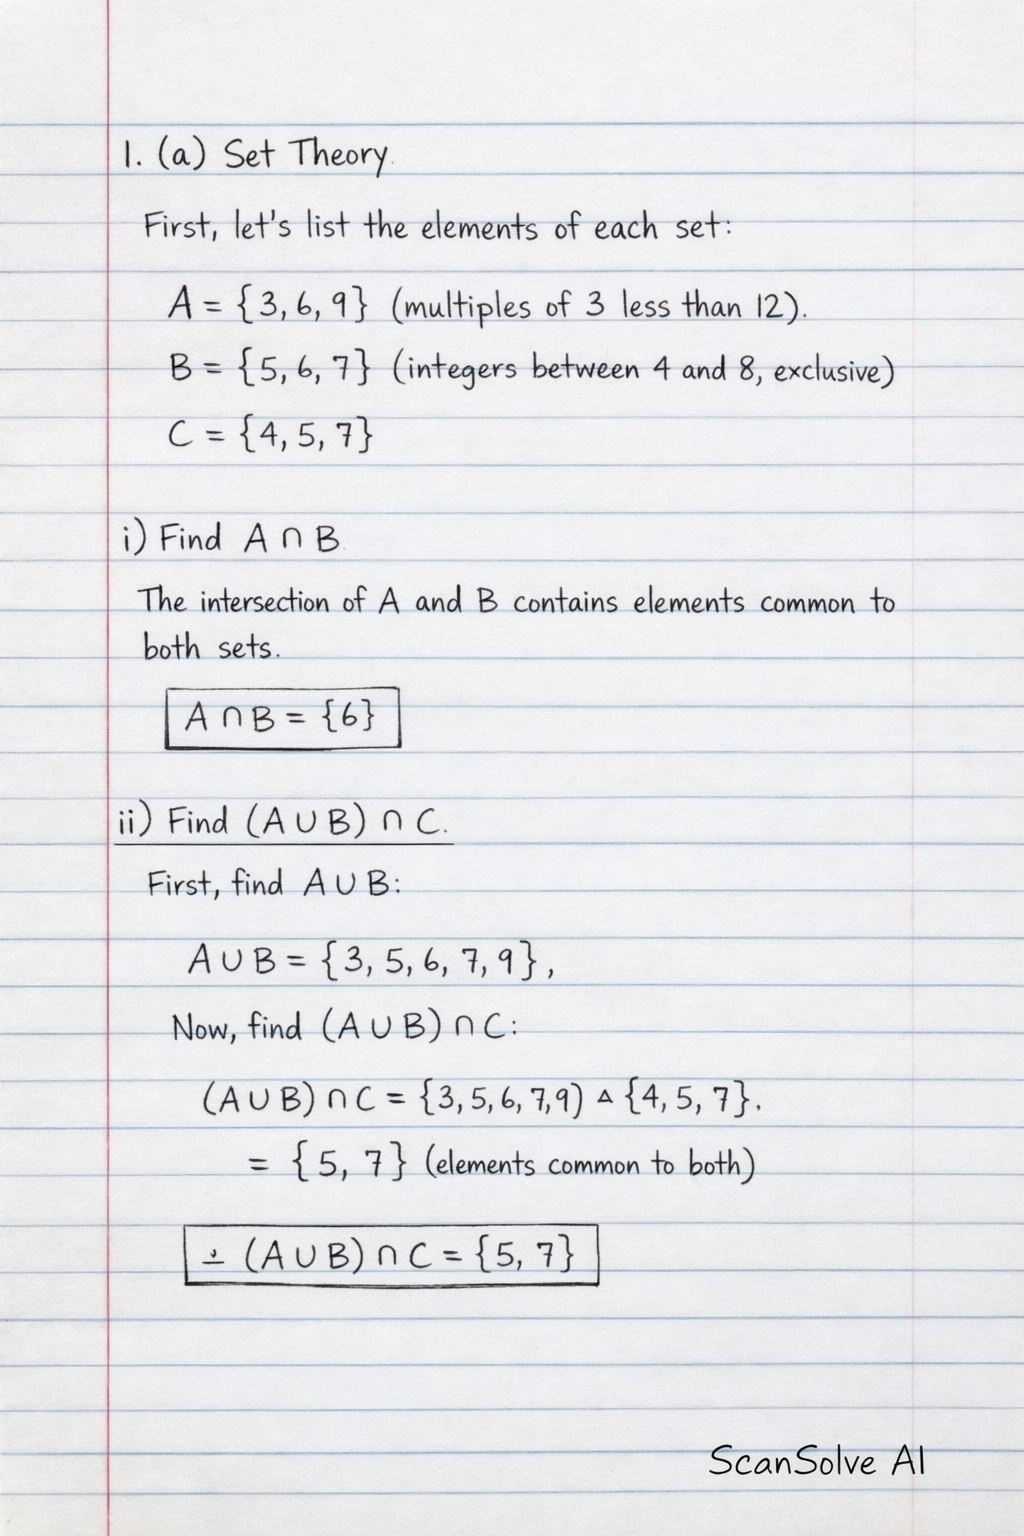 1. (a) Set Theory.
First, let's list the elements of each set:
A = {3, 6, 9} (multiples of 3 less than 12).
B = {5, 6, 7} (integers between 4 and 8, exclusive)
C = {4, 5, 7}
i) Find A ∩ B
The intersection of A and B contains elements common to
both sets.
A ∩ B = {6}
ii) Find (A ∪ B) ∩ C.
First, find A ∪ B:
A ∪ B = {3, 5, 6, 7, 9},
Now, find (A ∪ B) ∩ C:
(A ∪ B) ∩ C = {3, 5, 6, 7, 9) ▵ {4, 5, 7}.
= {5, 7} (elements common to both)
(A ∪ B) ∩ C = {5, 7}
ScanSolve AI